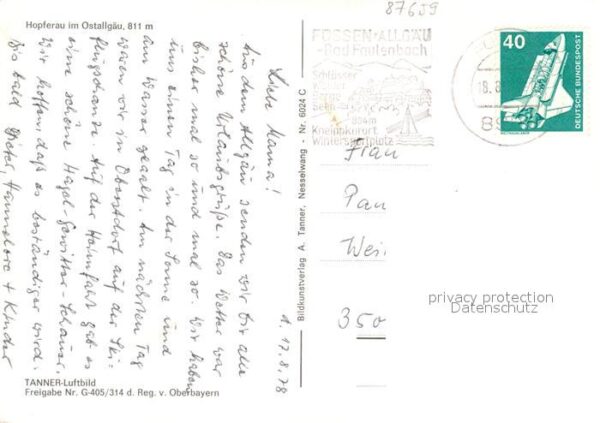 87659
Hopferau im Ostallgäu, 811 m
d. 17.8.78
Liebe Mama!
Aus dem Allgäu senden wir dir alle
schöne Urlaubsgrüße. Das Wetter war
bisher mal so und mal so. Wir haben
uns einen Tag in der Sonne und
am Wasser geaalt. Am nächsten Tag
waren wir in Oberstdorf auf der Ski-
flugschanze. Auf der Heimfahrt gab es
eine schöne Hagel-Gewitter-Schauer.
Wir hoffen, daß es beständiger wird.
Bis bald Dieter, Hannelore + Kinder
TANNER-Luftbild
Freigabe Nr. G-405/314 d. Reg. v. Oberbayern
Bildkunstverlag A. Tanner, Nesselwang - Nr. 6024 C
FÜSSEN-ALLGÄU
-Bad Faulenbach
Schlösser
Seen
804m
Kneippkurort
Wintersportplatz
18.8
89
40
DEUTSCHE BUNDESPOST
Frau
Pau
Wei
350
privacy protection
Datenschutz